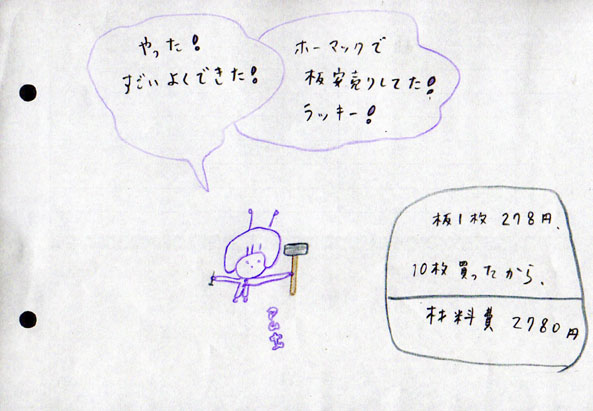 やった!
すごいよくできた!
ホーマックで
板安売りしてた!
ラッキー!
板1枚 278円、
10枚買ったから、
材料費 2780円